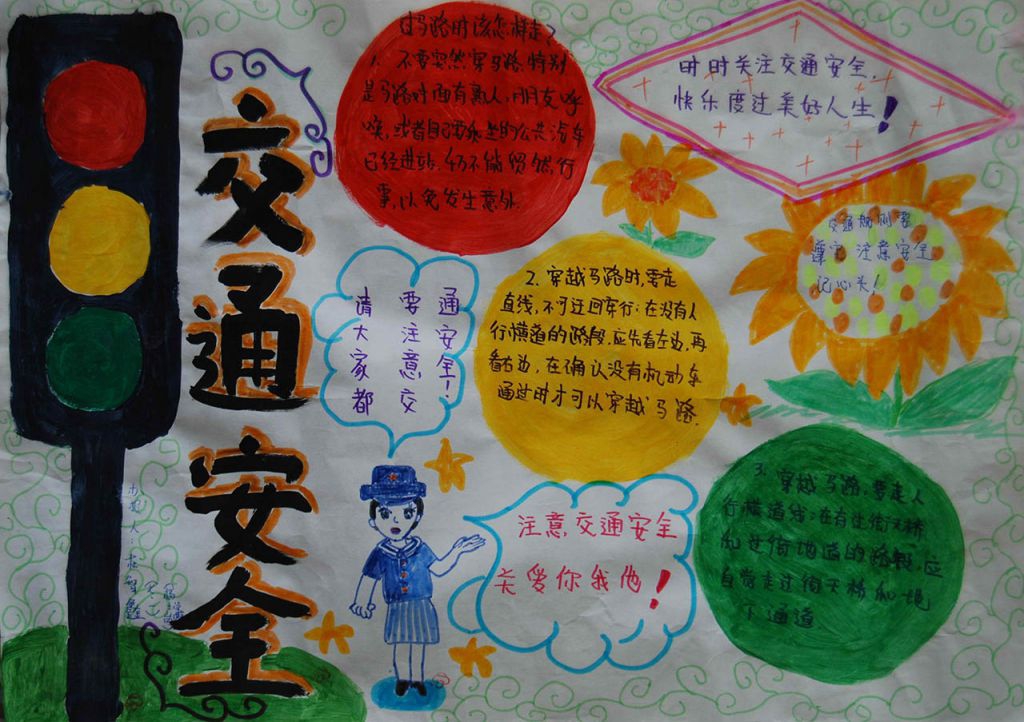 交通安全
过马路时该怎样走?
1. 不要突然穿马路.特别
是马路对面有熟人,朋友呼
唤,或者自己要乘坐的公共汽车
已经进站,仍不能贸然行
事,以免发生意外.
时时关注交通安全,
快乐度过美好人生!
交通规则要
遵守 注意安全
记心头!
请大家都
要注意交
通安全!
2. 穿越马路时,要走
直线,不可迂回车行;在没有人
行横道的路段,应先看左边,再
看右边,在确认没有机动车
通过时才可以穿越马路.
注意交通安全
关爱你我他!
3. 穿越马路要走人
行横道线;在有过街天桥
和过街地道的路段,应
自觉走过街天桥和地
下通道